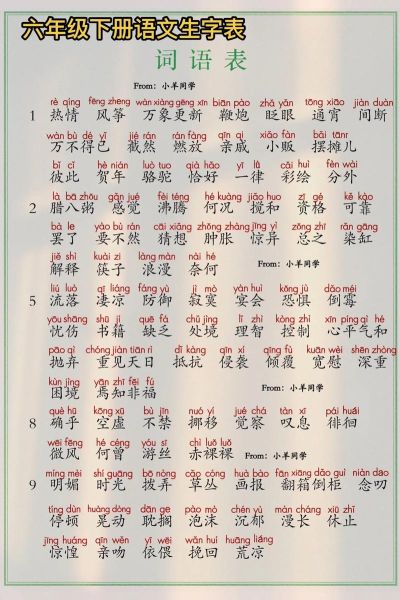 六年级下册语文生字表
词语表
From：小羊同学
rè qíng fēng zheng wàn xiàng gēng xīn biān pào zhǎ yǎn tōng xiāo jiàn duàn
1 热情 风筝 万象更新 鞭炮 眨眼 通宵 间断
wàn bù dé yǐ jié rán rán fàng qīn qi xiǎo fàn bǎi tānr
万不得已 截然 燃放 亲戚 小贩 摆摊儿
bǐ cǐ hè nián luò tuo qià hǎo yí lǜ cǎi huì fèn wài
彼此 贺年 骆驼 恰好 一律 彩绘 分外
là bā zhōu gǎn jué fèi téng hé kuàng jiǎo huo zī gé kě kào
2 腊八粥 感觉 沸腾 何况 搅和 资格 可靠
bà le yào bù rán cāi xiǎng zhǒng zhàng jīng yì zǒng zhī rǎn gāng
罢了 要不然 猜想 肿胀 惊异 总之 染缸
jiě shì kuài zi làng màn nài hé
解释 筷子 浪漫 奈何
From：小羊同学
liú luò qī liáng fáng yù jì mò yàn huì kǒng jù dǎo méi
5 流落 凄凉 防御 寂寞 宴会 恐惧 倒霉
yōu shāng shū jí quē fá chǔ jìng lǐ zhì kòng zhì xīn píng qì hé
忧伤 书籍 缺乏 处境 理智 控制 心平气和
pāo qì chóng jiàn tiān rì dǐ kàng qīn xí qīng fù kuān wèi shēn zhòng
抛弃 重见天日 抵抗 侵袭 倾覆 宽慰 深重
kùn jìng yān zhī fēi fú
困境 焉知非福
From：小羊同学
què hū kōng xū bù jīn nuó yí jué chá tàn xī pái huái
8 确乎 空虚 不禁 挪移 觉察 叹息 徘徊
wēi fēng hé céng yóu sī chì luǒ luǒ
微风 何曾 游丝 赤裸裸
From：小羊同学
míng mèi shí guāng bō nòng cǎo cóng huà bào fān xiāng dǎo guì niàn dao
9 明媚 时光 拨弄 草丛 画报 翻箱倒柜 念叨
tíng dùn huàng dòng dān ge pào mò chén yù màn cháng xiū zhǐ
停顿 晃动 耽搁 泡沫 沉郁 漫长 休止
jīng huáng qīn wěn yī wēi wǎn huí huāng liáng
惊惶 亲吻 依偎 挽回 荒凉